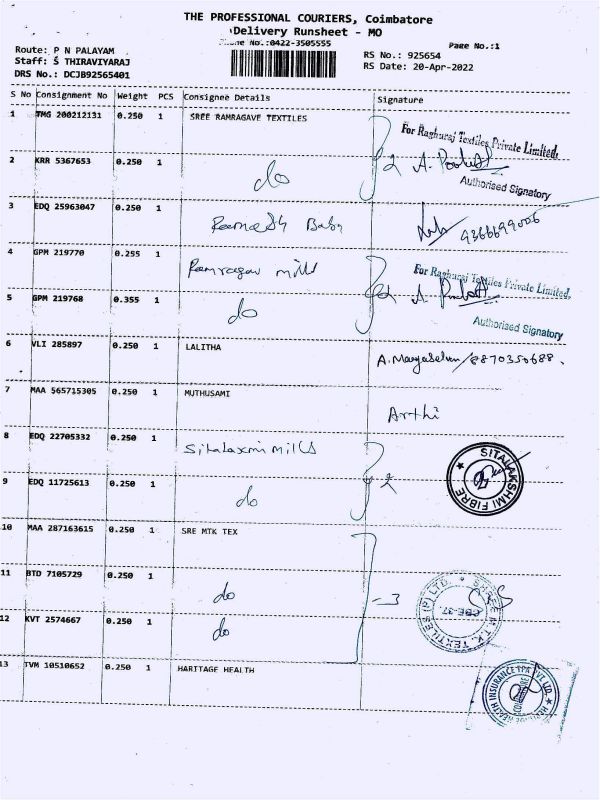 THE PROFESSIONAL COURIERS, Coimbatore
Delivery Runsheet - MO
Phone No.:0422-3505555
Page No.:1
Route: P N PALAYAM
Staff: S THIRAVIYARAJ
DRS No.: DCJB92565401
RS No.: 925654
RS Date: 20-Apr-2022
S No Consignment No Weight PCS Consignee Details Signature
1 TMG 200212131 0.250 1 SREE RAMRAGAVE TEXTILES
For Raghuraj Textiles Private Limited,
2 KRR 5367653 0.250 1 do 2
Authorised Signatory
3 EDQ 25963047 0.250 1 Ramesh Babu 9366699006
4 GPM 219770 0.255 1 Ramragav mills
For Raghuraj Textiles Private Limited,
5 GPM 219768 0.355 1 do 2
Authorised Signatory
6 VLI 285897 0.250 1 LALITHA A. /8870350688.
7 MAA 565715305 0.250 1 MUTHUSAMI Arthi
8 EDQ 22705332 0.250 1 Sitalaxmi mills
SITALAKSHMI FIBRE
9 EDQ 11725613 0.250 1 do 2
10 MAA 287163615 0.250 1 SRE MTK TEX
11 BTD 7105729 0.250 1 do -3
SHREE M.T.K. TEXTILES (P) LTD.
CBE-37
12 KVT 2574667 0.250 1 do
13 TVM 10510652 0.250 1 HARITAGE HEALTH
HEALTH INSURANCE TPA PVT LTD.